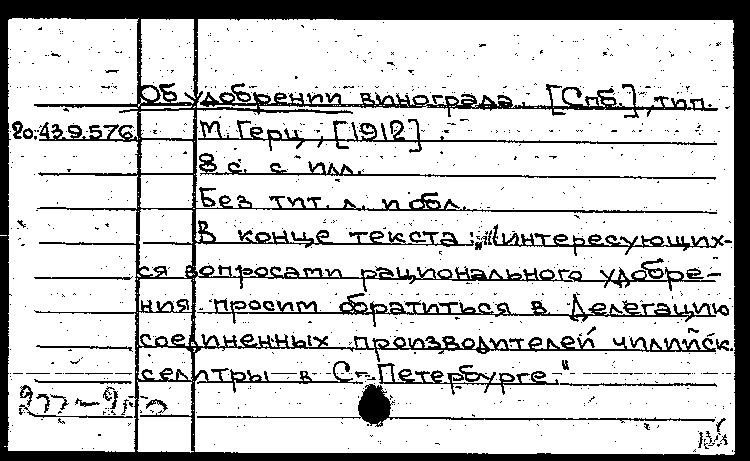 Об удобрении винограда. [Спб.], тип.
20.43.9.576. М. Герц, [1912].
8 с. с илл.
Без тит. л. и обл.
В конце текста: „Интересующих-
ся вопросами рационального удобре-
ния просим обратиться в Делегацию
соединенных производителей чилийск.
селитры в С.-Петербурге."